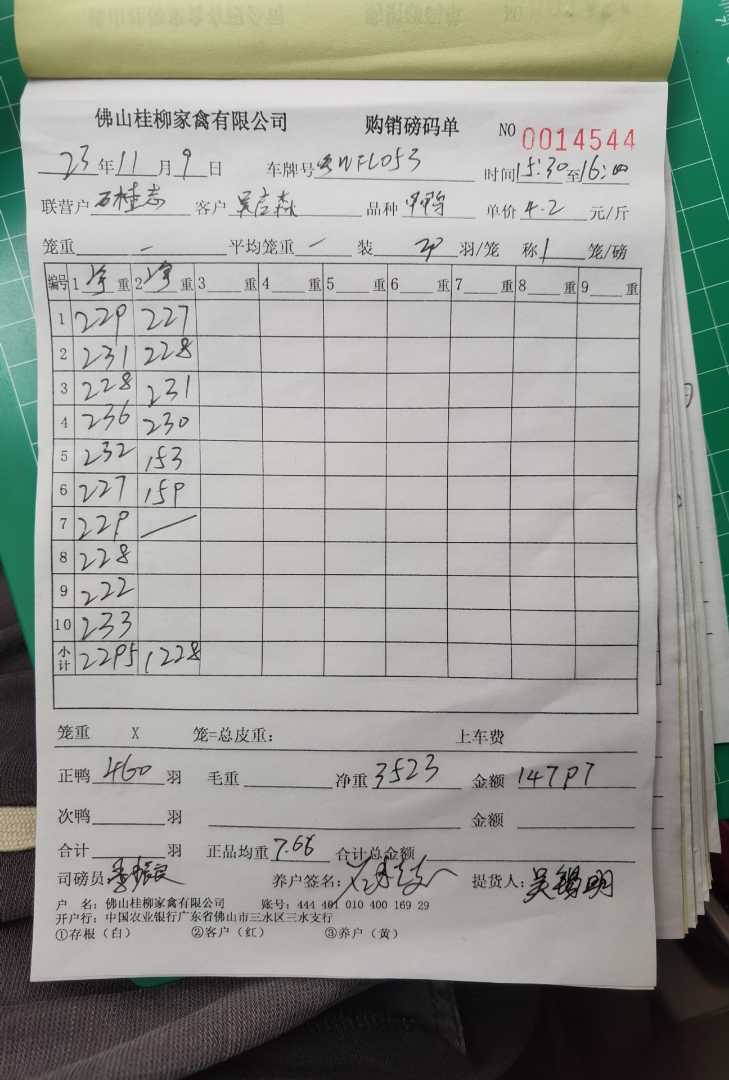 佛山桂柳家禽有限公司 购销磅码单 NO 0014544
23年11月9日 车牌号 WFL053 时间15:30至16:00
联营户 石桂志 客户 品种 单价 4.2 元/斤
笼重 — 平均笼重 — 装 羽/笼 称 1 笼/磅
编号 1 净 重 2 净 重 3 重 4 重 5 重 6 重 7 重 8 重 9 重
1 229 227
2 231 228
3 228 231
4 236 230
5 232 153
6 227 159
7 229 —
8 228
9 222
10 233
小计 2295 1228
笼重 X 笼=总皮重: 上车费
正鸭 460 羽 毛重 净重 3523 金额 14797
次鸭 羽 金额
合计 羽 正品均重 7.66 合计总金额
司磅员: 养户签名: 提货人: 吴锡明
户 名: 佛山桂柳家禽有限公司 账号: 444 401 010 400 169 29
开户行: 中国农业银行广东省佛山市三水区三水支行
①存根(白) ②客户(红) ③养户(黄)